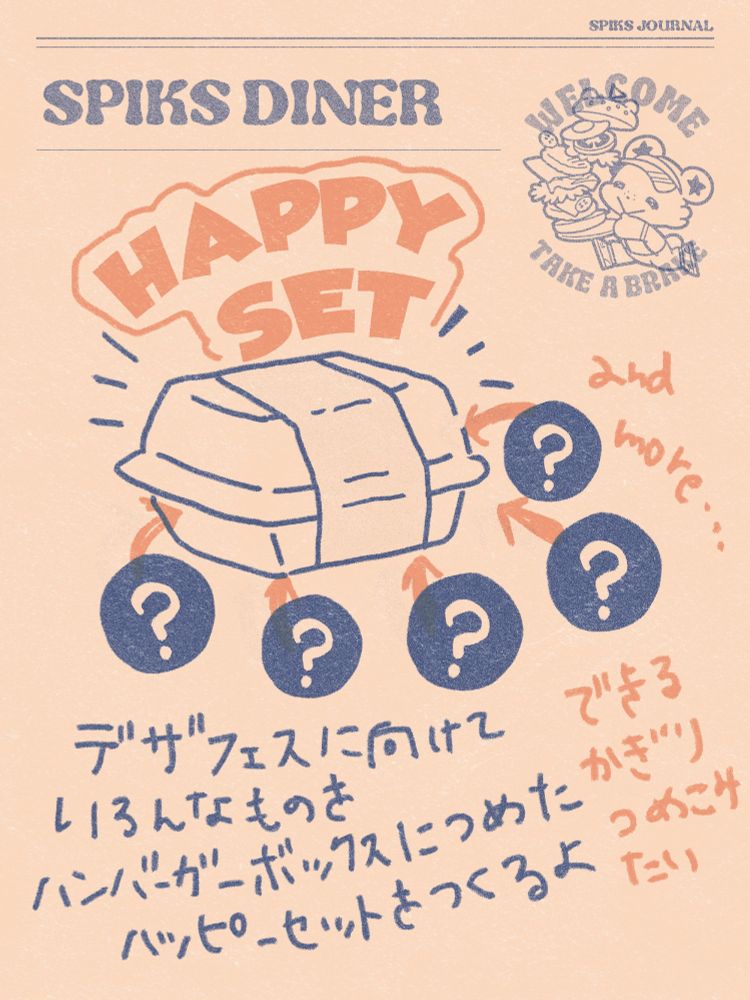 SPIKS JOURNAL
SPIKS DINER
WELCOME
TAKE A BRAVE
HAPPY
SET
and
more...
?
?
?
?
?
デザフェスに向けて
いろんなものを
ハンバーガーボックスにつめた
ハッピーセットをつくるよ
できる
かぎり
つめこみ
たい